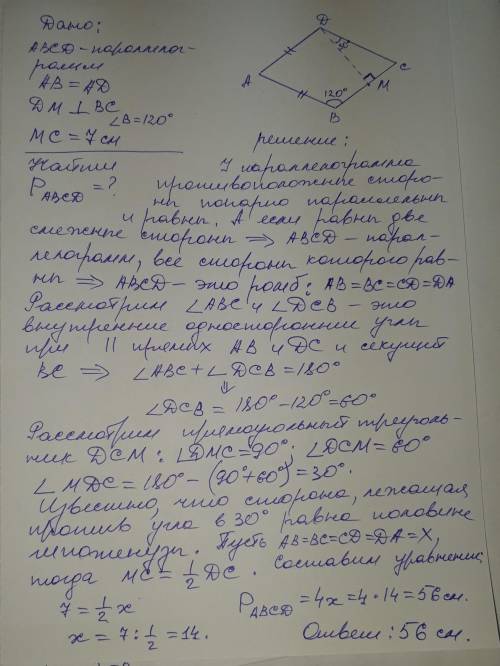 Дано:
ABCD - параллелог-
рамм
AB = AD
DM ⊥ BC
∠B = 120°
MC = 7 см
Найти
P ABCD = ?
D
A
C
M
B
120°
решение:
У параллелограмма
противоположные сторо-
ны попарно параллельны
и равны. А если равны две
смежные стороны ⇒ ABCD - парал-
лелограмм, все стороны которого рав-
ны ⇒ ABCD - это ромб: AB = BC = CD = DA
Рассмотрим ∠ABC и ∠DCB - это
внутренние односторонние углы
при || прямых AB и DC и секущей
BC ⇒ ∠ABC + ∠DCB = 180°
⇓
∠DCB = 180° - 120° = 60°
Рассмотрим прямоугольный треуголь-
ник DCM: ∠DMC = 90°; ∠DCM = 60°
∠MDC = 180° - (90° + 60°) = 30°.
Известно, что сторона, лежащая
против угла в 30° равна половине
гипотенузы. Пусть AB = BC = CD = DA = X,
тогда MC = 1/2 DC. Составим уравнение:
7 = 1/2 x
x = 7 : 1/2 = 14.
P ABCD = 4x = 4 · 14 = 56 см.
Ответ: 56 см.